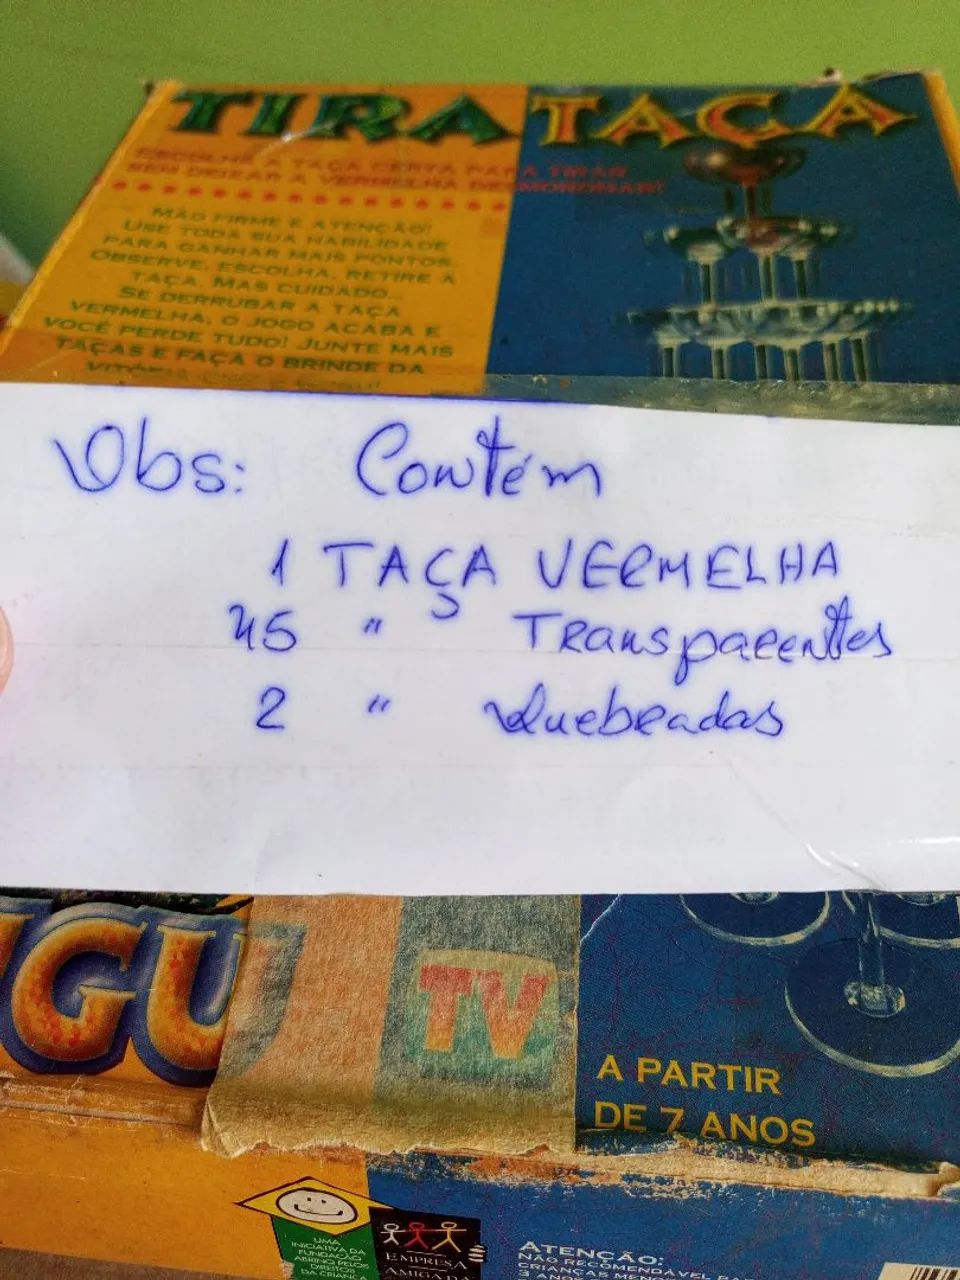 TIRA TAÇA
ESCOLHE A TAÇA CERTA PARA TIRAR
SEM DEIXAR A VERMELHA DESMORONAR!
MÃO FIRME E ATENÇÃO!
USE TODA SUA HABILIDADE
PARA GANHAR MAIS PONTOS.
OBSERVE, ESCOLHA, RETIRE A
TAÇA. MAS CUIDADO...
SE DERRUBAR A TAÇA
VERMELHA, O JOGO ACABA E
VOCÊ PERDE TUDO! JUNTE MAIS
TAÇAS E FAÇA O BRINDE DA
Obs: Contém
1 TAÇA VERMELHA
45 " Transparentes
2 " Quebradas
GÚ
TV
A PARTIR
DE 7 ANOS
UMA
INICIATIVA DA
FUNDAÇÃO
ABRINQ PELOS
DIREITOS
DA CRIANÇA
EMPRESA
AMIGA DA
ATENÇÃO:
NÃO RECOMENDÁVEL
CRIANÇAS
3 ANOS